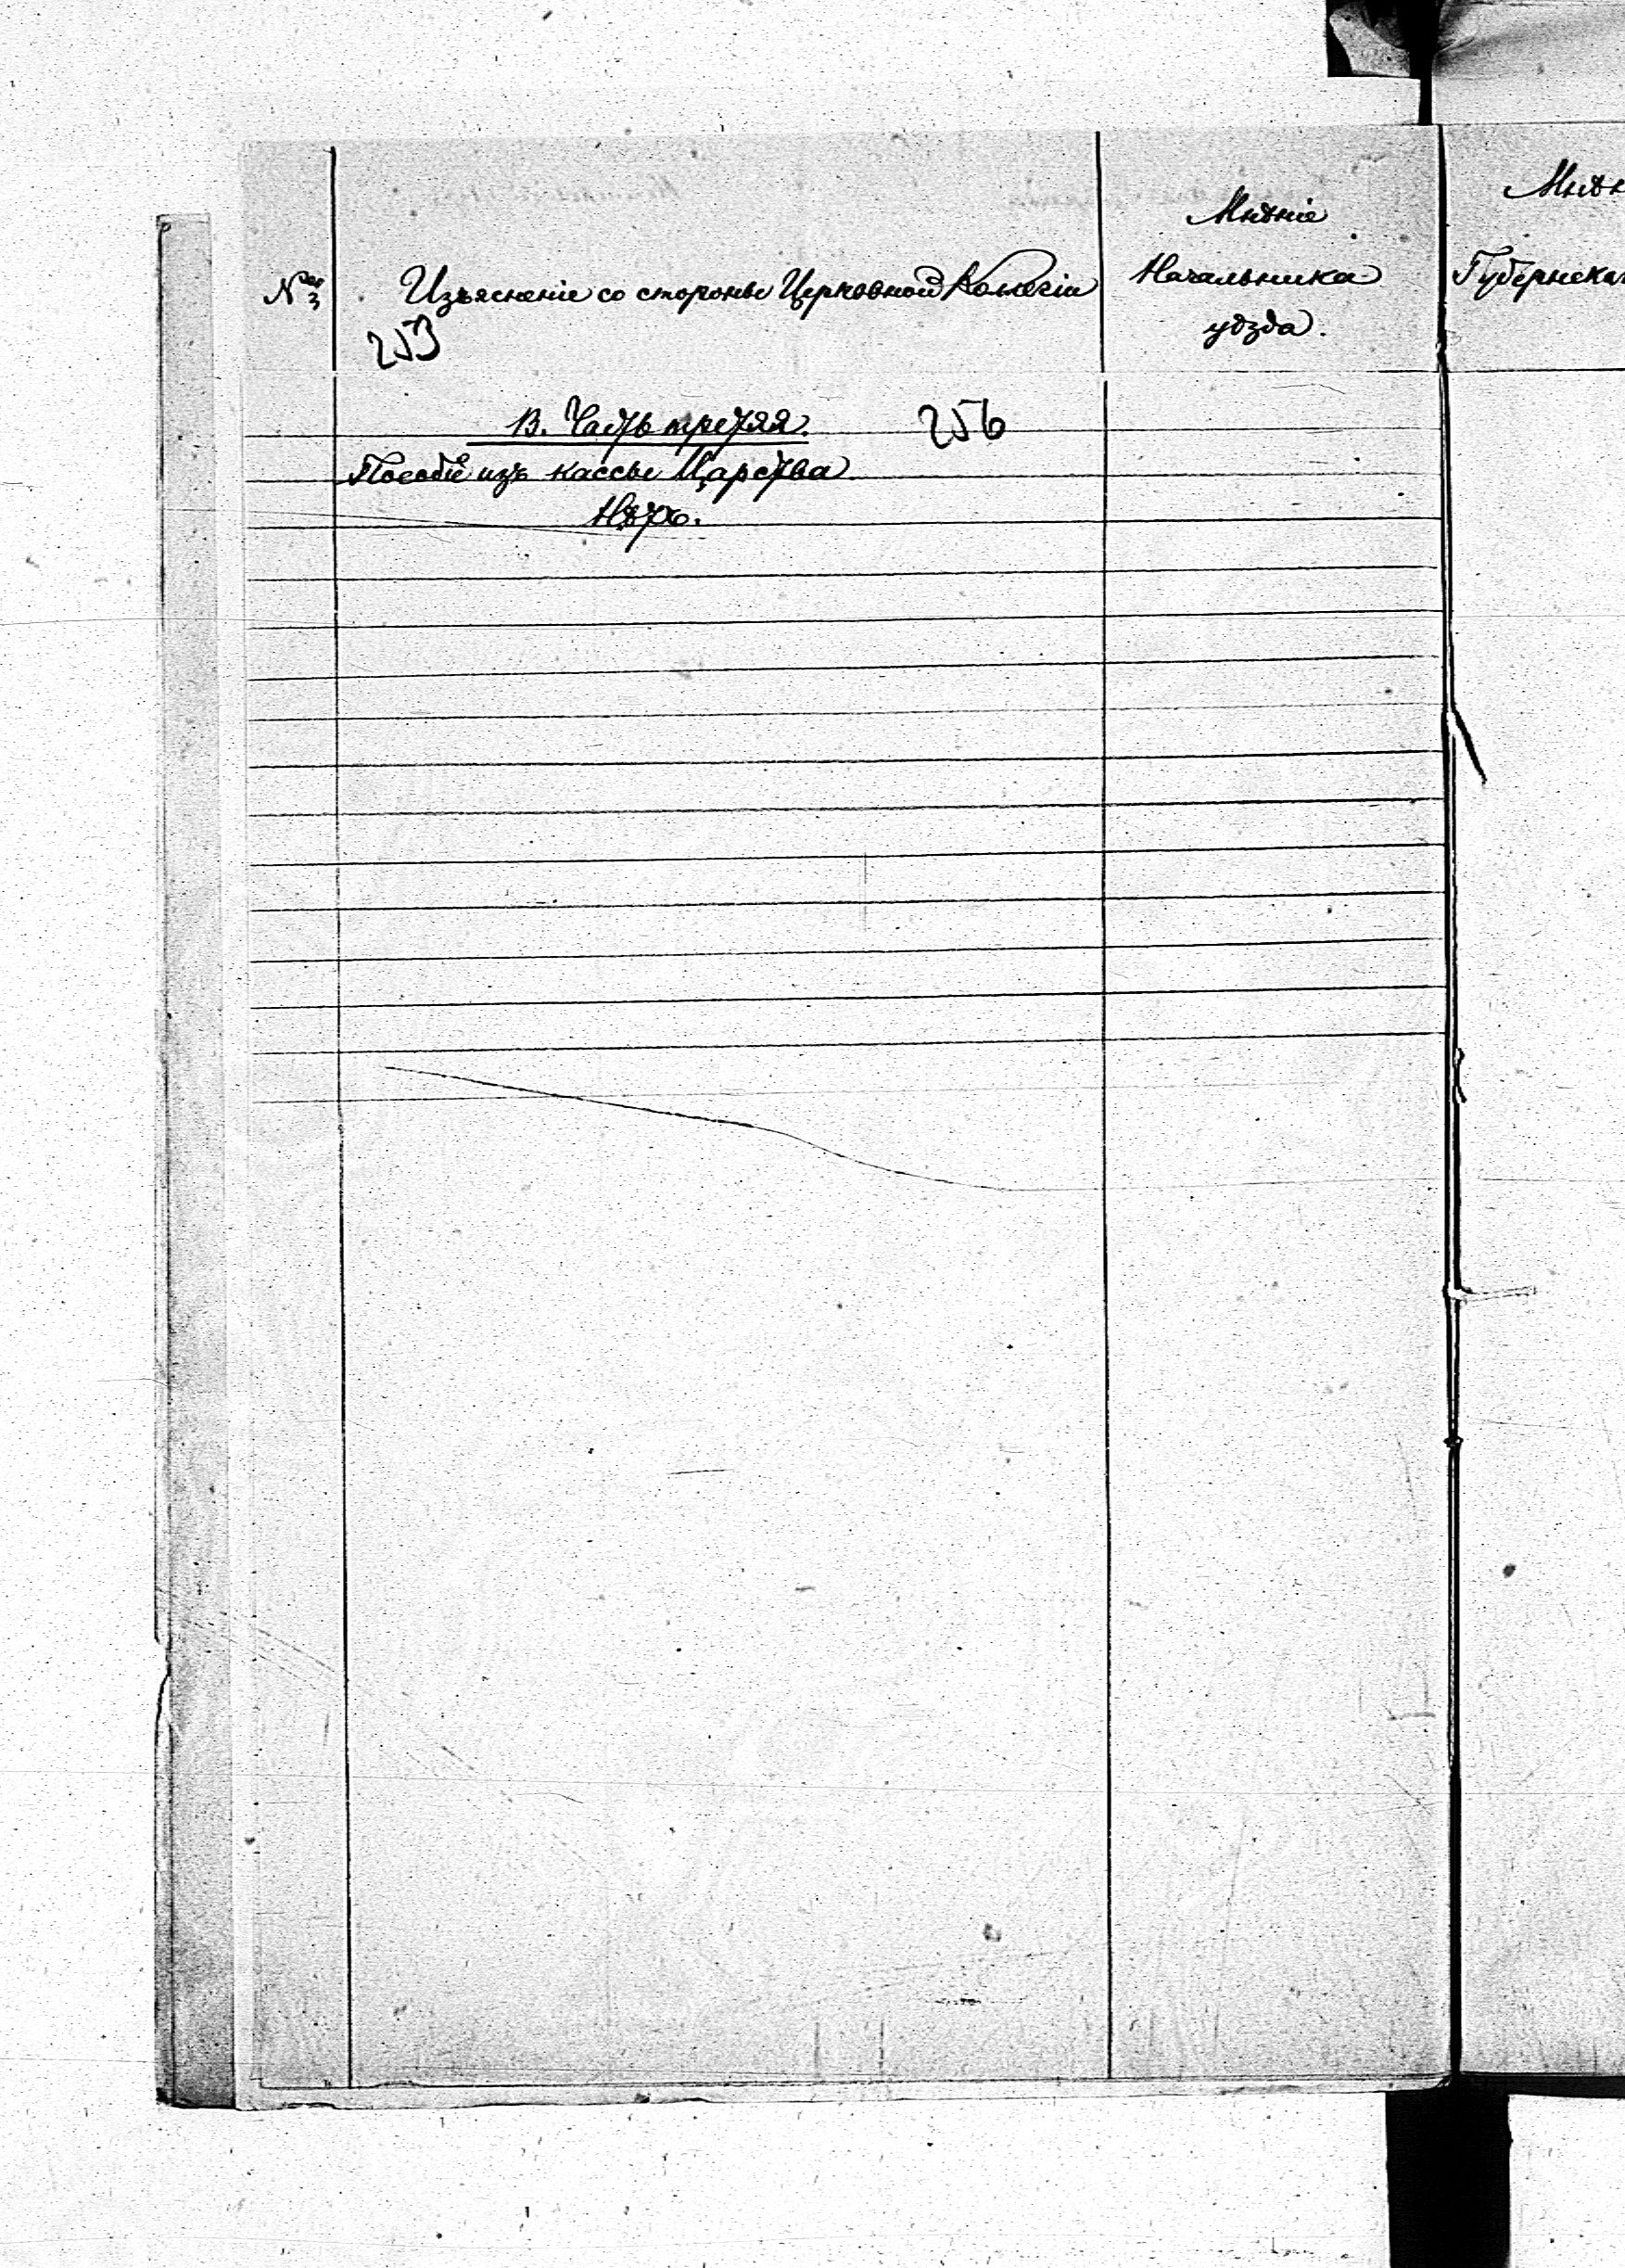 №
Изъясненіе со стороны Церковной Колегіи
Мнѣніе
Начальника
уѣзда.
Мнѣн
Губернска
253
256
В. Часть третяя.
Пособіе изъ кассы Царства
Нѣтъ.